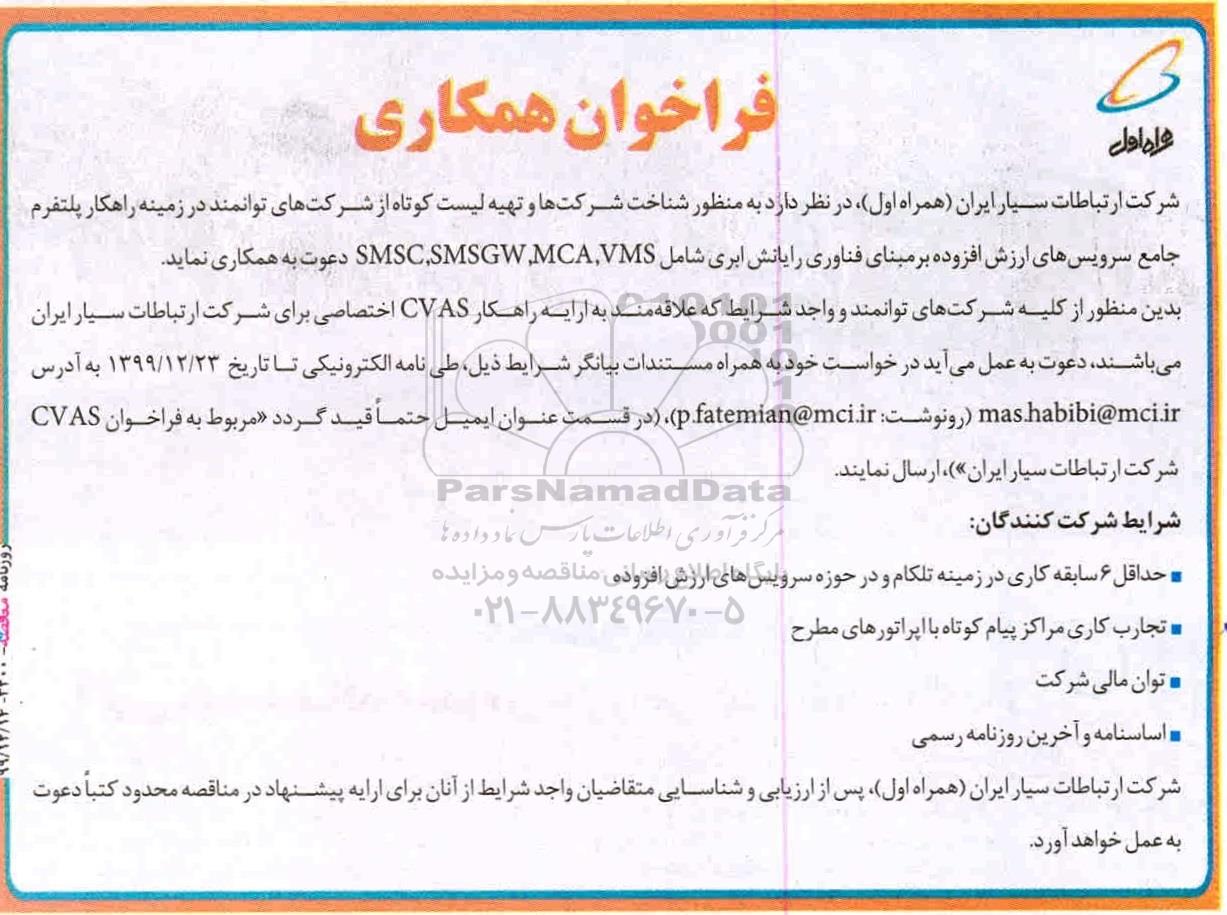 همراه اول
فراخوان همکاری
شرکت ارتباطات سیار ایران (همراه اول)، در نظر دارد به منظور شناخت شرکت‌ها و تهیه لیست کوتاه از شرکت‌های توانمند در زمینه راهکار پلتفرم
جامع سرویس‌های ارزش افزوده بر مبنای فناوری رایانش ابری شامل SMSC,SMSGW,MCA,VMS دعوت به همکاری نماید.
بدین منظور از کلیه شرکت‌های توانمند و واجد شرایط که علاقه‌مند به ارایه راهکار CVAS اختصاصی برای شرکت ارتباطات سیار ایران
می‌باشند، دعوت به عمل می‌آید درخواست خود به همراه مستندات بیانگر شرایط ذیل، طی نامه الکترونیکی تا تاریخ ۱۳۹۹/۱۲/۲۳ به آدرس
mas.habibi@mci.ir (رونوشت: p.fatemian@mci.ir)، (در قسمت عنوان ایمیل حتماً قید گردد «مربوط به فراخوان CVAS
شرکت ارتباطات سیار ایران»)، ارسال نمایند.
ParsNamadData
شرایط شرکت کنندگان:
مرکز فرآوری اطلاعات پارس نماد داده‌ها
■ حداقل ۶ سابقه کاری در زمینه تلکام و در حوزه سرویس‌های ارزش افزوده
پایگاه اطلاع رسانی مناقصه و مزایده
۰۲۱-۸۸۳۴۹۶۷۰-۵
■ تجارب کاری مراکز پیام کوتاه با اپراتورهای مطرح
■ توان مالی شرکت
■ اساسنامه و آخرین روزنامه رسمی
شرکت ارتباطات سیار ایران (همراه اول)، پس از ارزیابی و شناسایی متقاضیان واجد شرایط از آنان برای ارایه پیشنهاد در مناقصه محدود کتباً دعوت
به عمل خواهد آورد.
روزنامه مناقصه